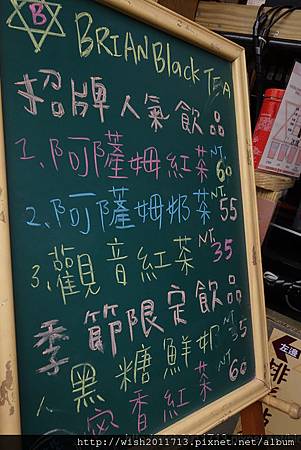 B
BRIAN Black TEA
招牌人氣飲品
1、阿薩姆紅茶 NT. 60
2、阿薩姆奶茶 NT 55
3.觀音紅茶 NT 35
季節限定飲品
黑糖鮮奶 NT 35
蜜香紅茶 NT 60
左邊
http://wish2011713.pixnet.net/blog